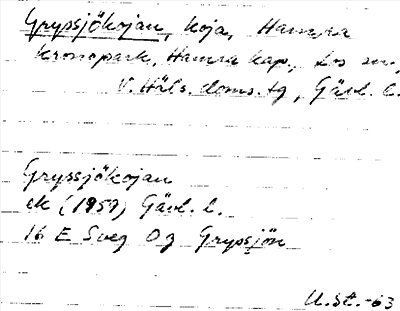 Grypsjökojan, koja, Hamra
kronopark, Hamra kap., Los sn,
V. Häls. doms. tg, Gävl. l.
Gryssjökojan
ek (1959) Gävl. l.
16 E Sveg 0 g Grypsjön
U. St. -63